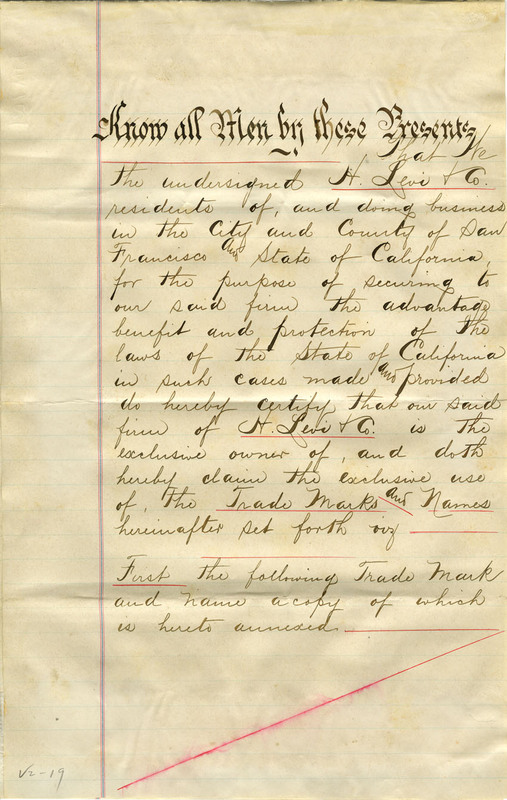 Know all Men by these Presents
That We
the undersigned H. Levi & Co.
residents of, and doing business
in the City and County of San
Francisco and State of California,
for the purpose of securing to
our said firm the advantage
benefit and protection of the
laws of the State of California
in such cases made and provided
do hereby certify that our said
firm of H. Levi & Co. is the
exclusive owner of, and doth
hereby claim the exclusive use
of, the Trade Marks and Names
hereinafter set forth viz
First the following Trade Mark
and name a copy of which
is hereto annexed
V2-19